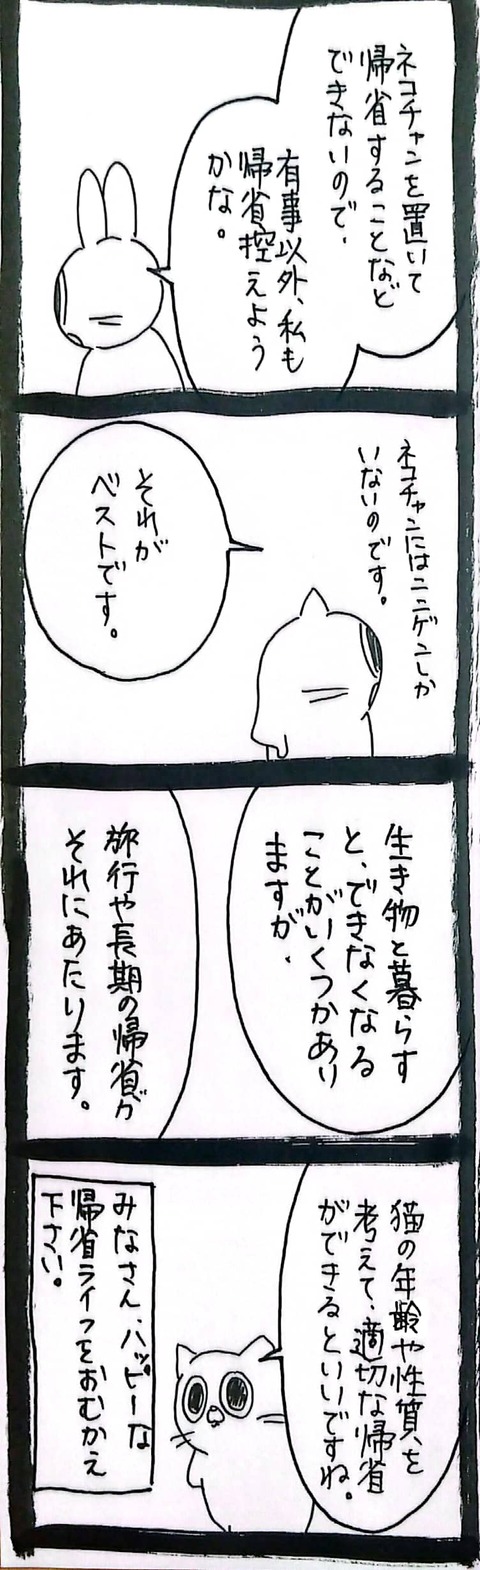 ネコチャンを置いて
帰省することなど
できないので、
有事以外、私も
帰省控えよう
かな。
ネコチャンにはニンゲンしか
いないのです。
それが
ベストです。
生き物と暮らす
と、できなくなる
ことがいくつかあり
ますが、
旅行や長期の帰省が
それにあたります。
猫の年齢や性質を
考えて、適切な帰省
ができるといいですね。
みなさん、ハッピーな
帰省ライフをおむかえ
下さい。